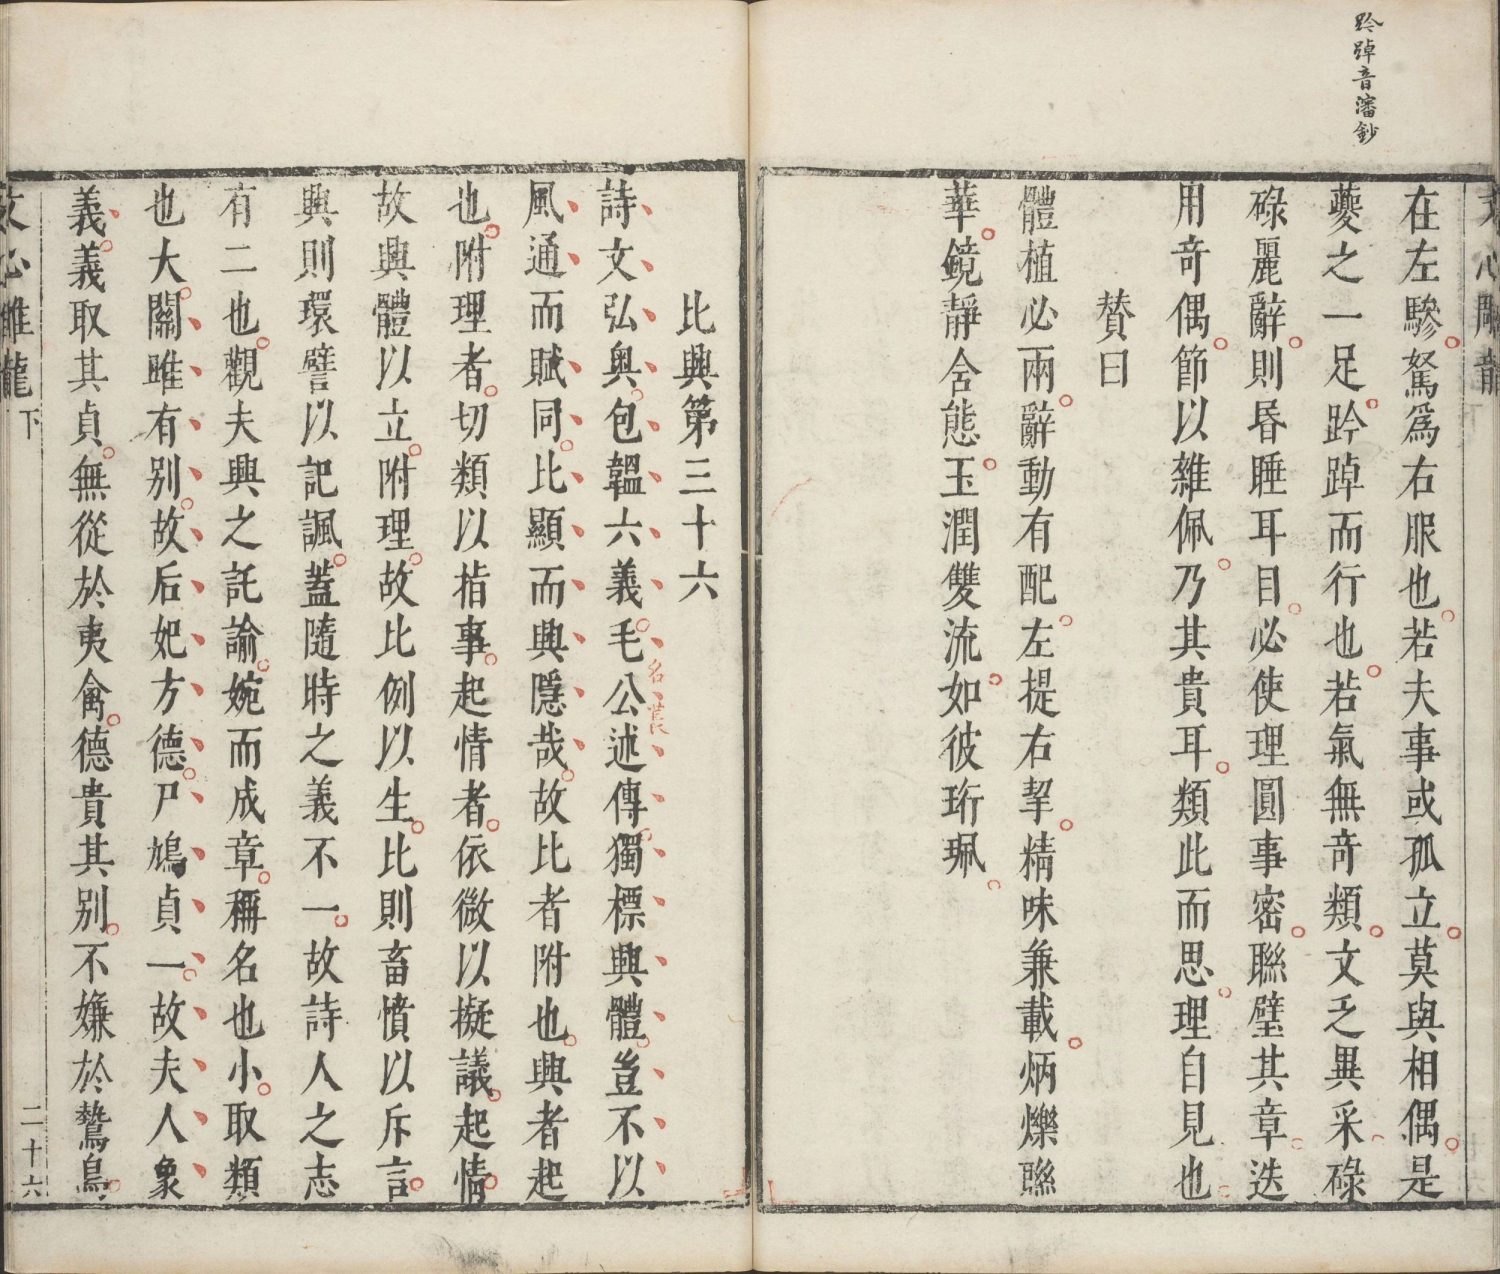 趻踔音瀋鈔
文心雕龍 下
在左驂駑爲右服也若夫事或孤立莫與相偶是
夔之一足趻踔而行也若氣無奇類文乏異采碌
碌麗辭則昬睡耳目必使理圓事密聯璧其章迭
用奇偶節以雜佩乃其貴耳類此而思理自見也
贊曰
體植必兩辭動有配左提右挈精味兼載炳爍聯
華鏡靜含態玉潤雙流如彼珩珮
比興第三十六
詩文弘奥包韞六義毛公述傳獨標興體豈不以
名萇
風通而賦同比顯而興隱哉故比者附也興者起
也附理者切類以指事起情者依微以擬議起情
故興體以立附理故比例以生比則畜憤以斥言
興則環譬以記諷葢隨時之義不一故詩人之志
有二也觀夫興之託諭婉而成章稱名也小取類
也大關雎有别故后妃方德尸鳩貞一故夫人象
義義取其貞無從於夷禽德貴其别不嫌於鷙鳥
文心雕龍 下 二十六